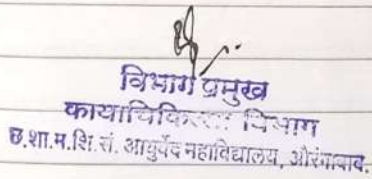 विभाग प्रमुख
कायाचिकित्सा विभाग
छ.शा.म.शि.सं. आयुर्वेद महाविद्यालय, औरंगाबाद.